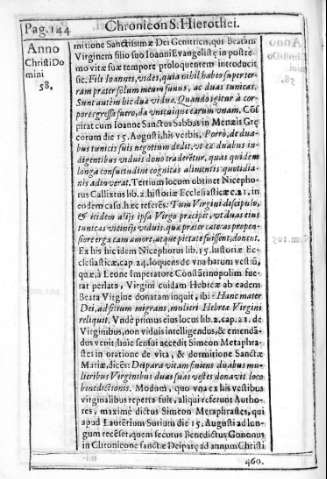 Pag. 144
Chronicon S. Hierothei.
Anno
Christi Do
mini
58.
mitione Sanctissimæ Dei Genitricis, qui Beatam
Virginem filio suo Ioanni Evangelistę in postre
mo vitæ suæ tempore proloquentem introducit
sic. Fili Ioannis, vides, quia nihil habeo super ter-
ram præter solum meum funus, ac duas tunicas.
Sunt autem hic duæ viduæ. Quando igitur à cor-
pore egressa fuero, da vnicuique earum vnam. Cōs
pirat cum Ioanne Sanctus Sabbas in Menæis Græ
corum die 15. Augusti, his verbis, Porrò, de dua-
bus tunicis suis negotium dedit, vt ex duabus in-
digentibus viduis dono traderetur, quas quidem
longa consuetudine cognitas alimentis quotidia-
nis adiuverat. Tertium locum obtinet Nicepho-
rus Callixtus lib. 2. historiæ Ecclesiasticæ c. 21. in
eodem casu hæc referēs: Tum Virgini discipulo,
& itidem alijs ipsa Virgo præcipit, vt duas eius
tunicas vicinis viduis, quæ præter cæteras propen-
siore erga eam amore, atque pietate fuissent, donent.
Ex his hic idem Nicephorus lib. 15. historiæ Ec-
clesiasticæ, cap. 24. loquens de vna harum vestiū,
quæ à Leone Imperatore Constātinopolim fue-
rat perlata, Virgini cuidam Hebreæ ab eadem
Beata Virgine donatam inquit, ibi: Hanc mater
Dei, ad filium migrans, mulieri Hebreæ Virgini
reliquit. Vndè primus eius locus lib. 2. cap. 21. de
Virginibus, non viduis intelligendus, & emendā-
dus venit: huic sensui accedit Simeon Metaphra-
stes in oratione de vita, & dormitione Sanctæ
Mariæ, dicēs: Deipara vitam finiens duabus mu-
lieribus Virginibus duas suas vestes donavit loco
benedictionis. Modum, quo vna ex his vestibus
virginalibus reperta fuit, aliqui referunt Autho-
res, maximè dictus Simeon Metaphrastes, qui
apud Laurētium Surium die 15. Augusti ad lon-
gum recēset, quem secutus Benedictus Gononus
in Chronicone sanctæ Deiparę ad annum Christi
460.